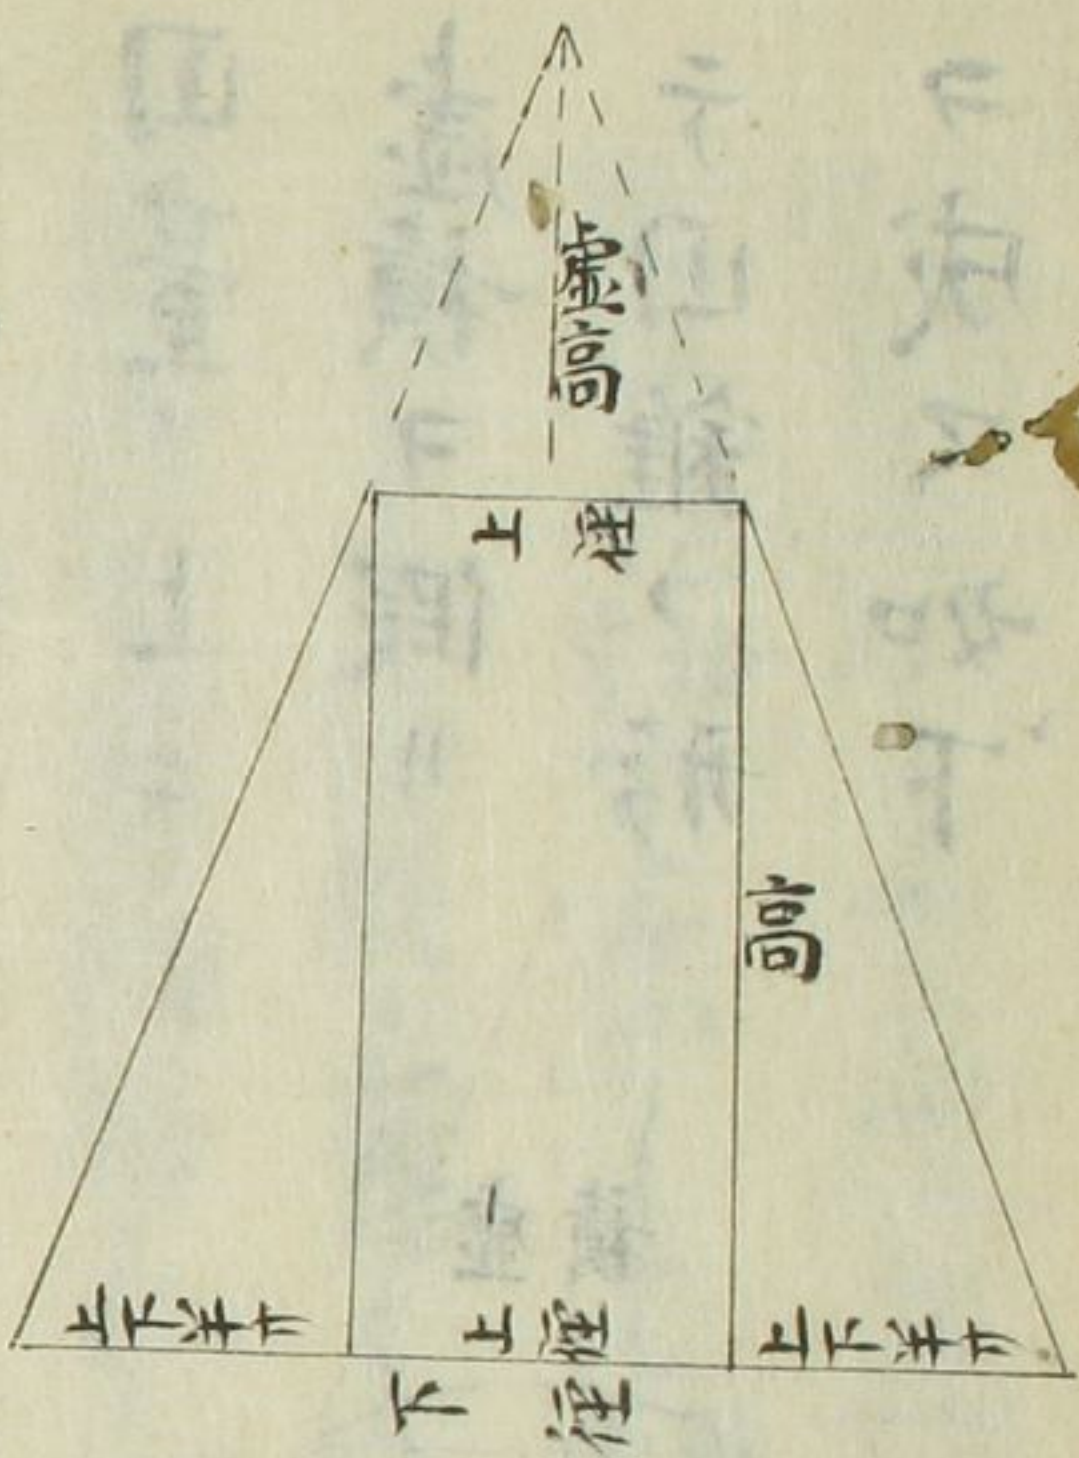 虚高
上径
高
上下半
上径
上下半
下径